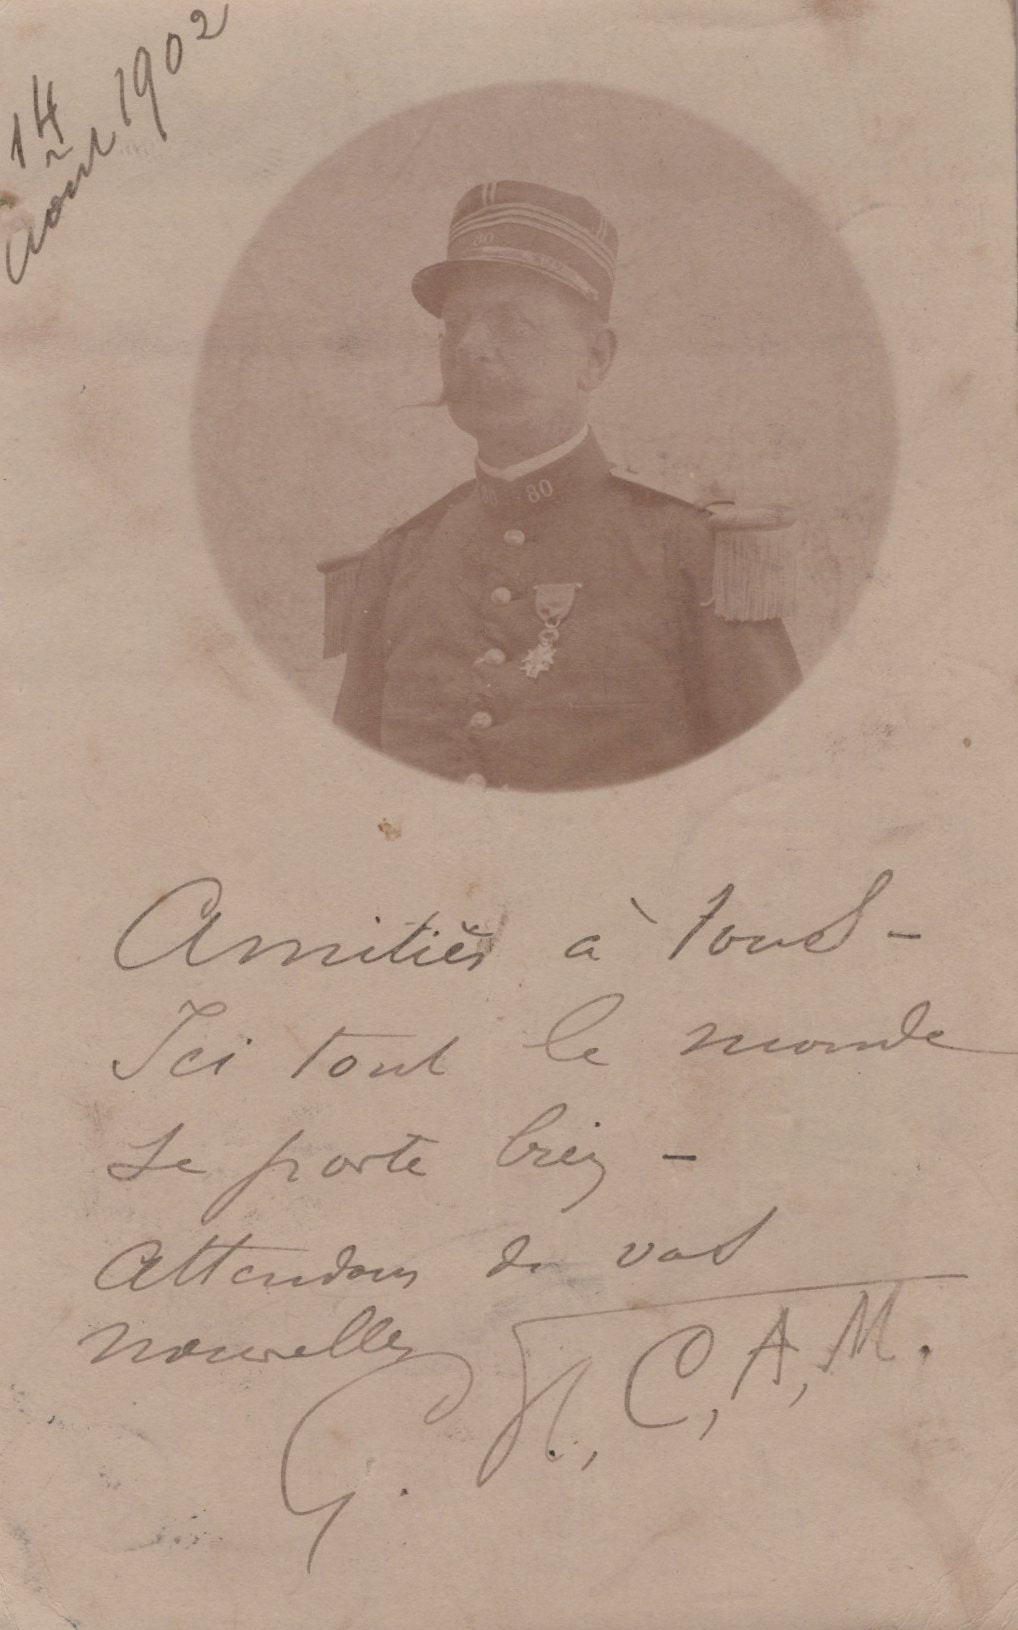 14
Août 1902
80
80 80
Amitiés à tous -
Ici tout le monde
se porte bien -
Attendons de vos
nouvelles
G. H, C, A, M.